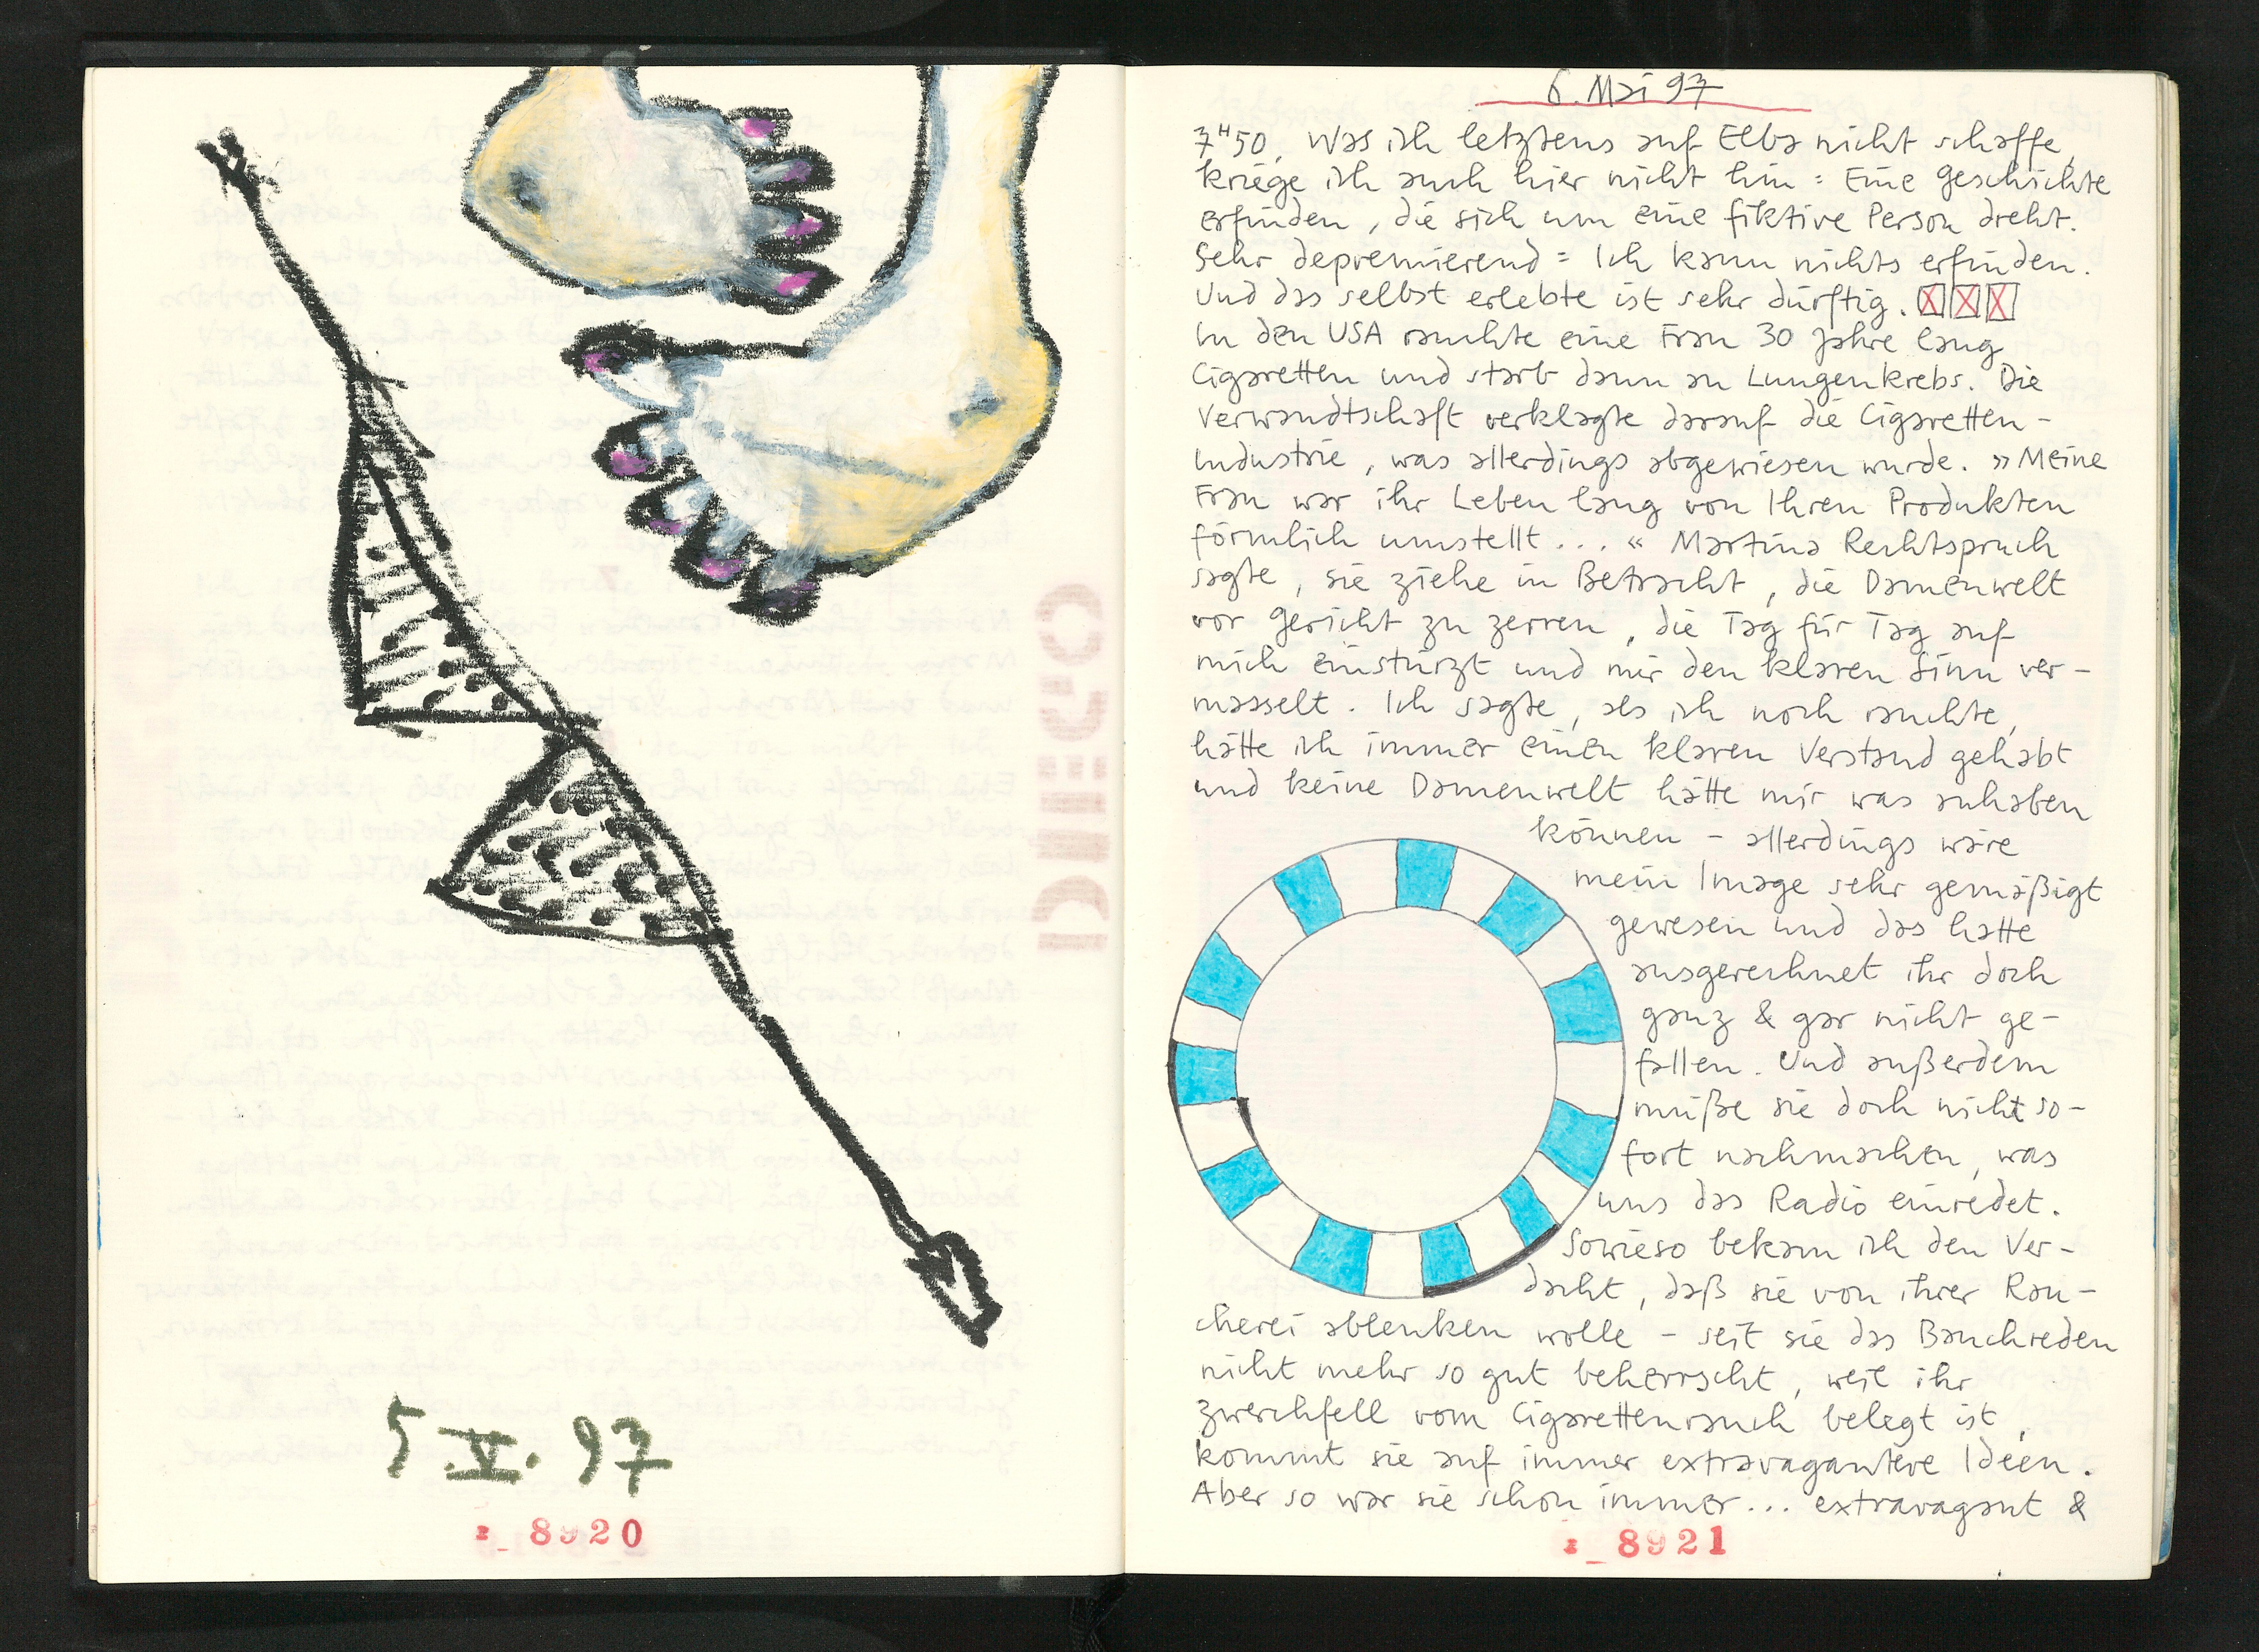 5.V.97
I_8920
6. Mai 97
7ᴴ50. Was ich letztens auf Elba nicht schaffe,
kriege ich auch hier nicht hin: Eine Geschichte
erfinden, die sich um eine fiktive Person dreht.
Sehr depremierend: Ich kann nichts erfinden.
Und das selbst erlebte ist sehr dürftig.
In den USA rauchte eine Frau 30 Jahre lang
Cigaretten und starb dann an Lungenkrebs. Die
Verwandtschaft verklagte darauf die Cigaretten-
Industrie, was allerdings abgewiesen wurde. »Meine
Frau war ihr Leben lang von Ihren Produkten
förmlich umstellt...« Martina Rechtspruch
sagte, sie ziehe in Betracht, die Damenwelt
vor Gericht zu zerren, die Tag für Tag auf
mich einstürzt und mir den klaren Sinn ver-
masselt. Ich sagte, als ich noch rauchte,
hätte ich immer einen klaren Verstand gehabt
und keine Damenwelt hätte mir was anhaben
können - allerdings wäre
mein Image sehr gemäßigt
gewesen und das hätte
ausgerechnet ihr doch
ganz & gar nicht ge-
fallen. Und außerdem
müße sie doch nicht so-
fort nachmachen, was
uns das Radio einredet.
Sowieso bekam ich den Ver-
dacht, daß sie von ihrer Rau-
cherei ablenken wolle - seit sie das Bauchreden
nicht mehr so gut beherrscht, weil ihr
Zwerchfell vom Cigarettenrauch belegt ist,
kommt sie auf immer extravagantere Ideen.
Aber so war sie schon immer... extravagant &
I_8921